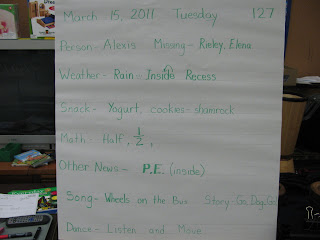 March 15, 2011 Tuesday 127
Person- Alexis Missing - Rieley, Elena
Weather- Rain - Inside Recess
Snack- Yogurt, cookies- shamrock
Math- Half, 1/2,
Other News- P.E. (inside)
Song- Wheels on the Bus Story- Go, Dog, Go
Dance- Listen and Move